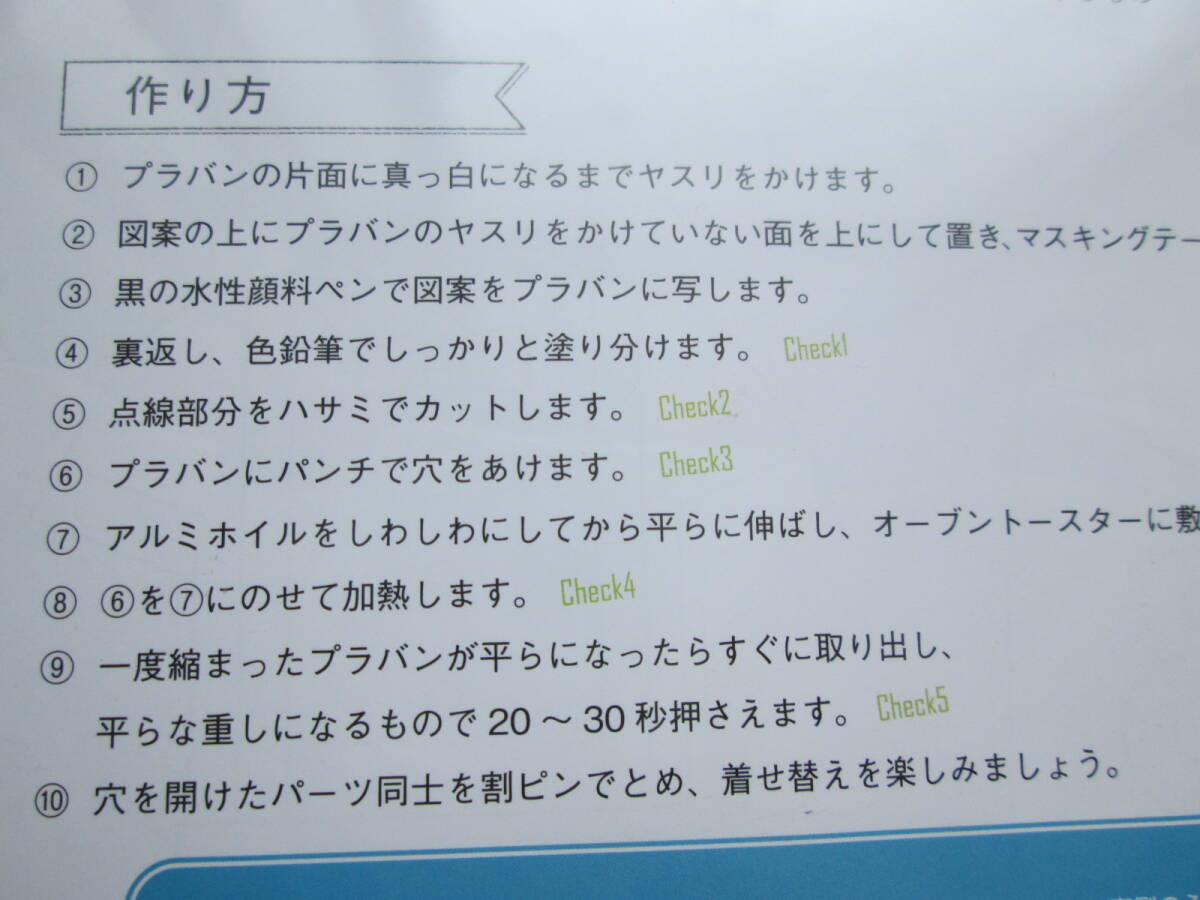 作り方
① プラバンの片面に真っ白になるまでヤスリをかけます。
② 図案の上にプラバンのヤスリをかけていない面を上にして置き、マスキングテー
③ 黒の水性顔料ペンで図案をプラバンに写します。
④ 裏返し、色鉛筆でしっかりと塗り分けます。 Check1
⑤ 点線部分をハサミでカットします。 Check2
⑥ プラバンにパンチで穴をあけます。 Check3
⑦ アルミホイルをしわしわにしてから平らに伸ばし、オーブントースターに敷
⑧ ⑥を⑦にのせて加熱します。 Check4
⑨ 一度縮まったプラバンが平らになったらすぐに取り出し、
平らな重しになるもので 20 〜 30 秒押さえます。 Check5
⑩ 穴を開けたパーツ同士を割ピンでとめ、着せ替えを楽しみましょう。